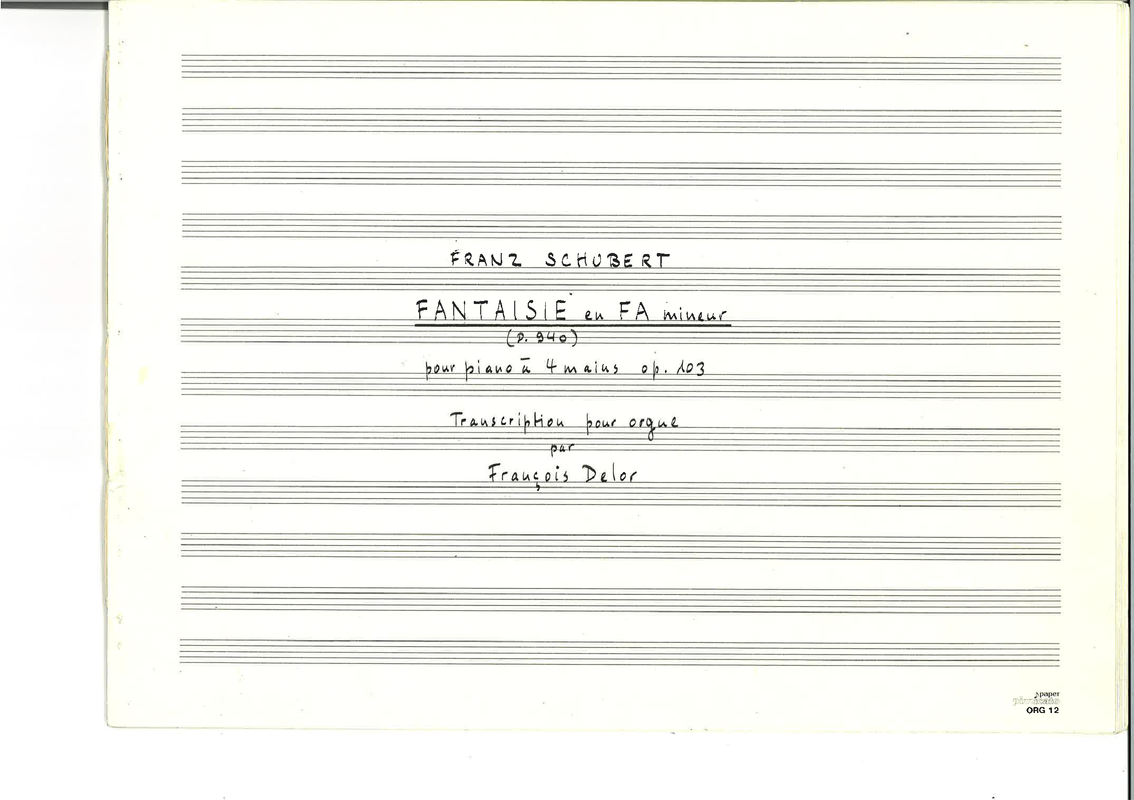 FRANZ SCHUBERT
FANTAISIE en FA mineur
(D. 940)
pour piano à 4 mains op. 103
Transcription pour orgue
par
François Delor
paper
ORG 12